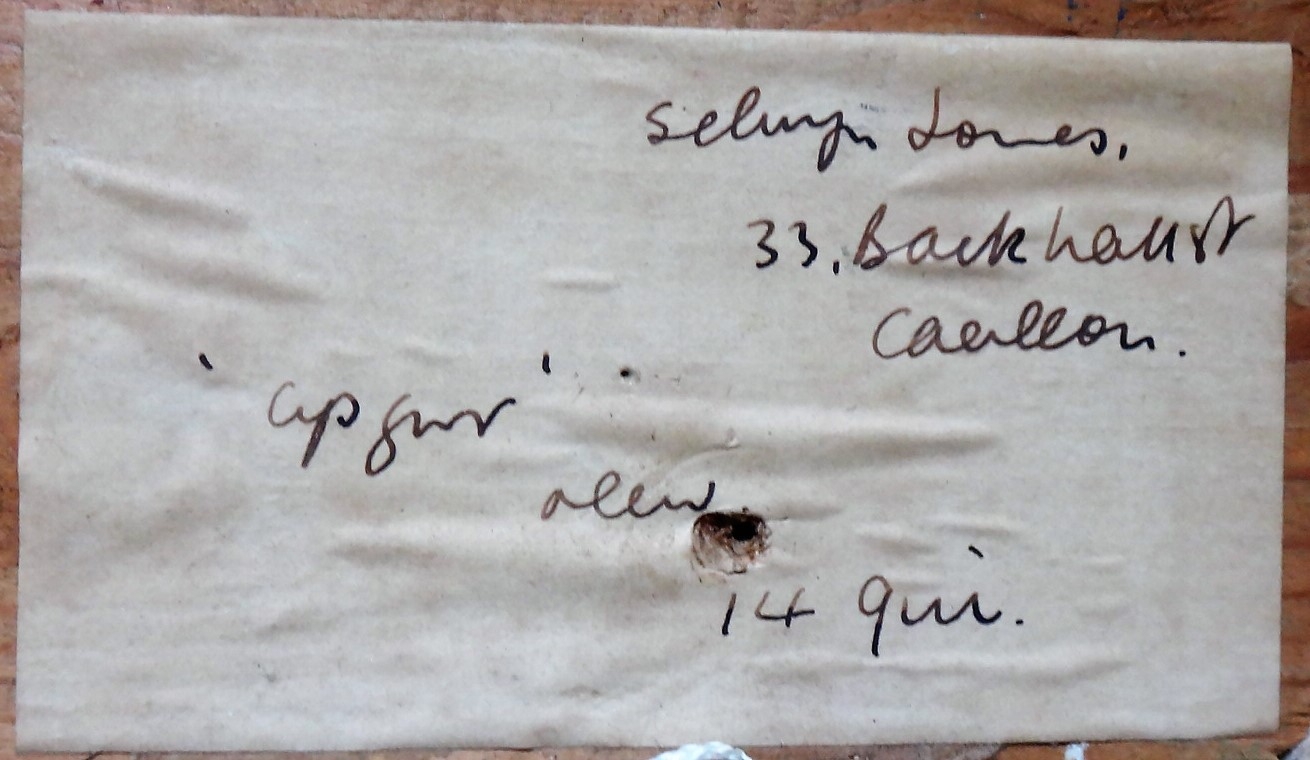 Selwyn Jones,
33, Backhall St
Caerleon.
olew
14 gni.